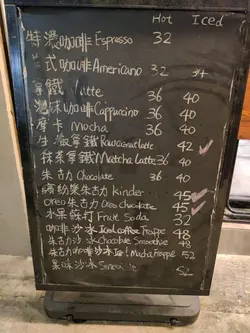 Hot Iced
特濃咖啡 Espresso 32
式咖啡 Americano 32 34
拿鐵 Latte 36 40
泡沫咖啡 Cappuccino 36 40
摩卡 Mocha 36 40
生 拿鐵 42
抹茶拿鐵 Matcha Latte 36 40
朱古力 Chocolate 36 40
繽紛樂朱古力 Kinder 45
Oreo朱古力 Oreo chocolate 45
水果蘇打 Fruit Soda 32
咖啡沙冰 Iced coffee Frappe 48
朱古力沙冰 Chocolate Smoothie 48
朱古力咖啡沙冰 Mocha Frappe 52
果味沙冰 52